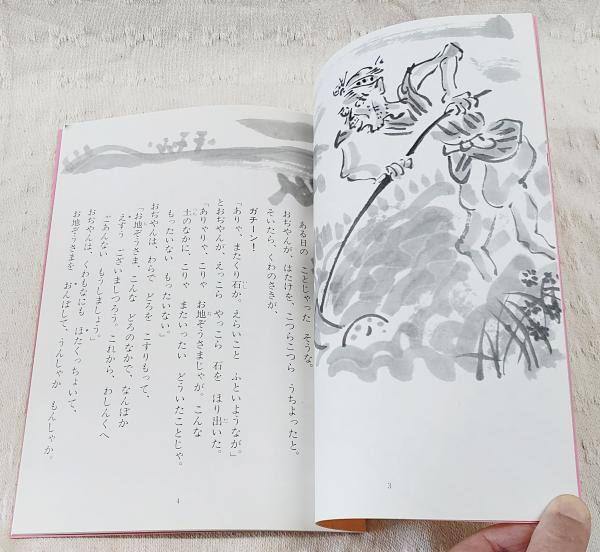 ある日の ことじゃった そうな。
おぢやんが、はたけを、こつらこつら うちよったと。
そいたら、くわのさきが、
ガチーン！
「ありゃ、またくり石か。えらいこと ふといようなが。」
とおぢやんが えっこら やっこら 石を ほり出いた。
「ありゃりゃ、こりゃ お地ぞうさまじゃが。こんな
土のなかに、こりゃ またいったい どういたことじゃ。
もったいない もったいない。」
おぢやんは、わらで どろを こすりもって、
「お地ぞうさま、こんな どろのなかで、なんぼか
えずう ございましつろう。これから、わしんくへ
ごあんない もうしましょう。」
おぢやんは、くわもなにも ほたくっちょいて、
お地ぞうさまを おんぼして、うんしゃか もんしゃか。
4
3